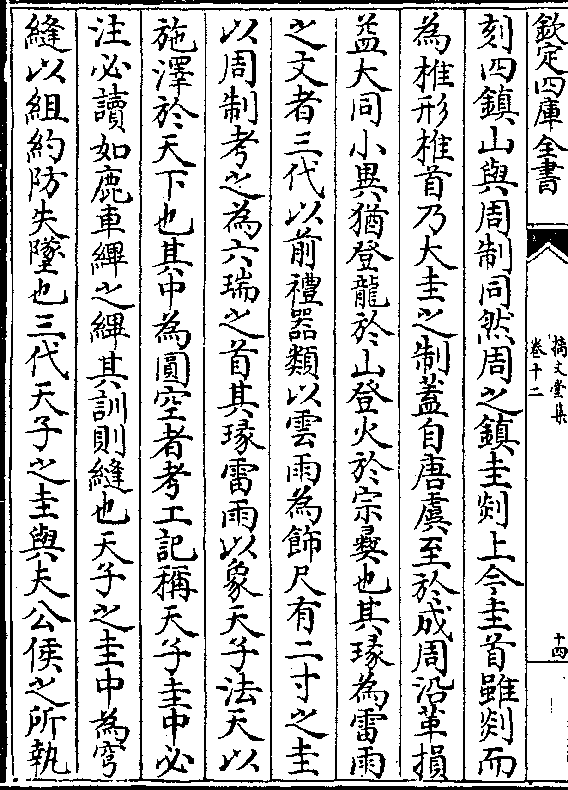 欽定四庫全書
摛文堂集
卷十二
十四
刻四鎮山與周制同然周之鎮圭剡上今圭首雖剡而
為椎形椎首乃大圭之制蓋自唐虞至於成周沿革損
益大同小異猶登龍於山登火於宗彞也其瑑為雷雨
之文者三代以前禮器類以雲雨為飾尺有二寸之圭
以周制考之為六瑞之首其瑑雷雨以象天子法天以
施澤於天下也其中為圓空者考工記稱天子圭中必
注必讀如鹿車縪之縪其訓則縫也天子之圭中為穹
縫以組約防失墜也三代天子之圭與夫公侯之所執